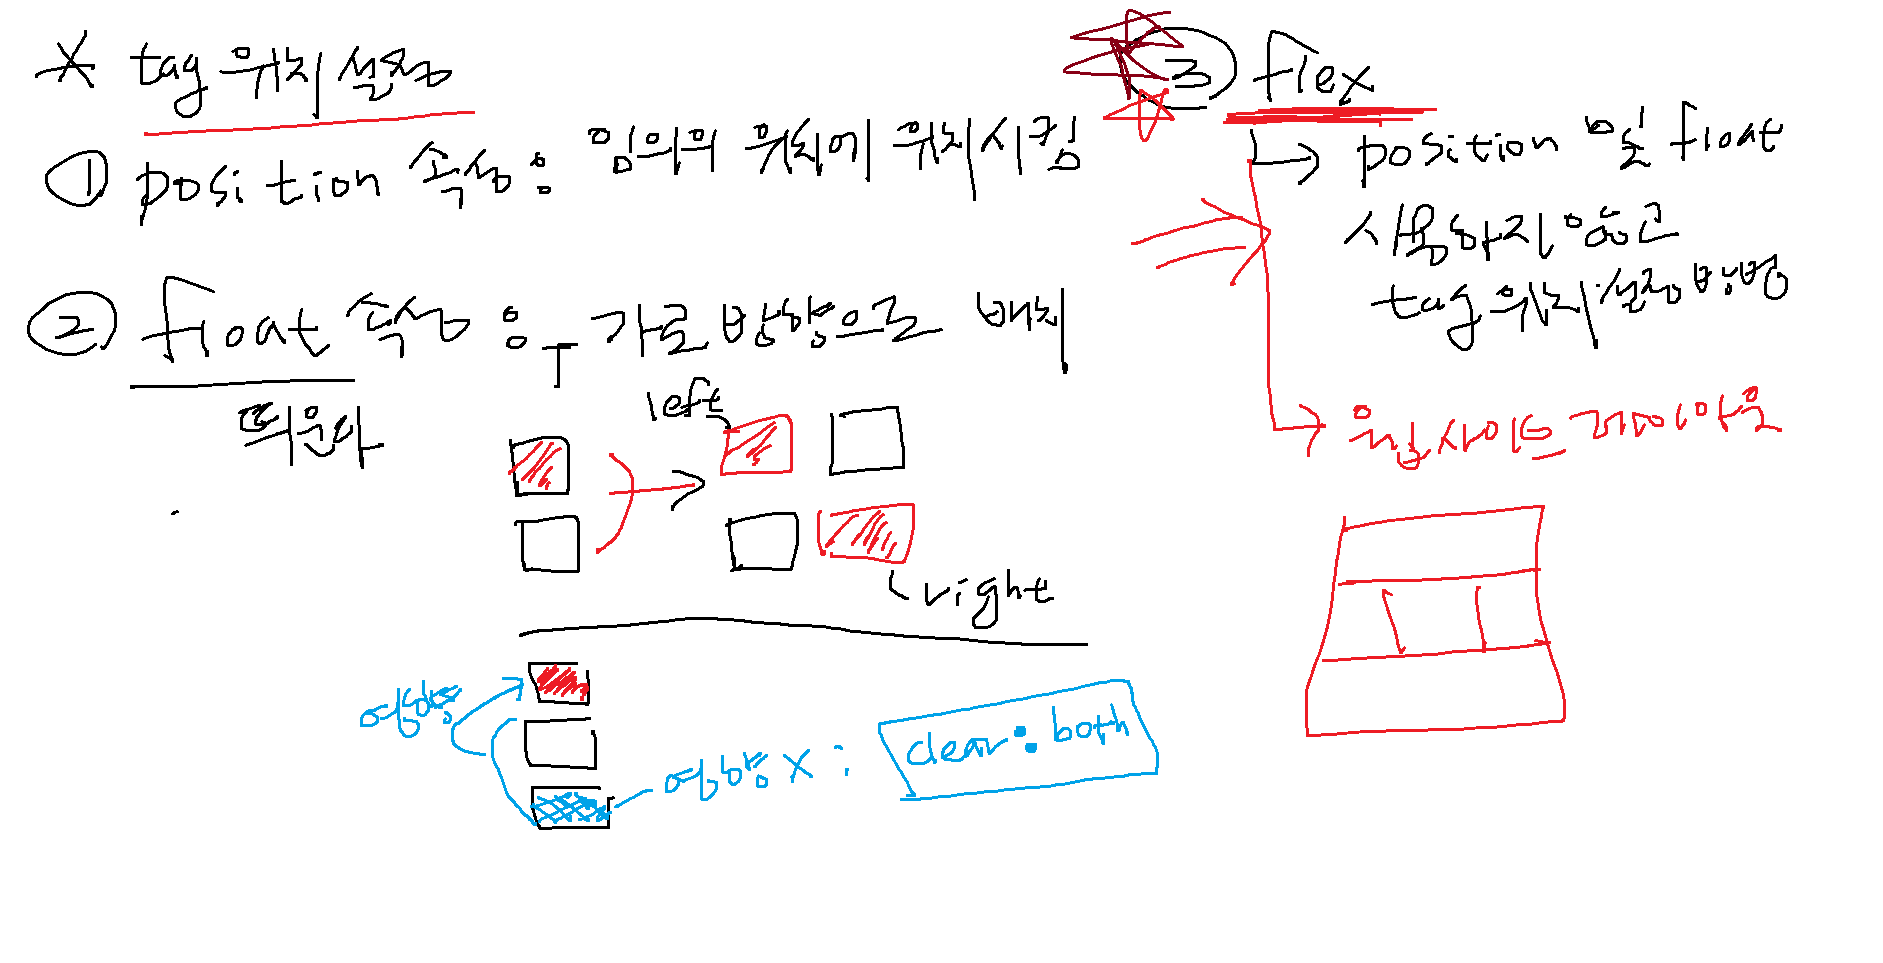 * tag 위치 설정
① position 속성 : 임의의 위치에 위치시킴
② float 속성 : 가로 방향으로 배치
띄운다
left
right
영향
영향 X : clear : both
③ flex
→ position 및 float
사용하지 않고
tag 위치 설정 방법
→ 웹 사이트 레이아웃